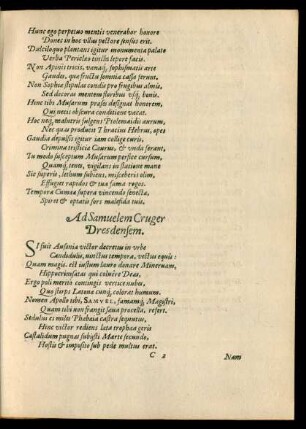 Hunc ego perpetuo mentis venerabor honore
Dones in hoc vllus pectore sensus erit.
Dulcilo quo plantans igitur monumenta palato
Verba Pericleo tincta lepore facis.
Non Apinis tricis, vanaq; sophismatis arte
Gaudes, quæ fructu somnia cassa ferunt.
Non Sophiæ stipulas condis pro frugibus almis,
Sed decoras mentem floribus vsq; bonis.
Hinc tibi Musarum præses designat honorem,
Quì metis obscura conditione vacat.
Hoc neq; mahutris fulgens Ptolemaidis aurum,
Nec quas producit Thracius Hebrus, opes
Gaudia depulsis igitur iam collige curis,
Crimina tristicia Caurus, & vnda ferant,
Tu modo susceptum Musarum perfice cursum,
Quamq; tenes, vigilans in statione mane
Sic superis, lethum subiens, misceberis olim,
Effuget rapidos & tua fama rogos.
Tempora Cumæa supera vincendo senecta,
Spiret & optatis sors malesida tuis.
Ad Samuelem Cruger
Dresdensem.
SI fuit Ausonia victor decretus in vrbe
Candidulis, vinctus tempora, vectus equis:
Quam magis est iustum lauro donare Minervam,
Hippocrinæas qui coluere Deas.
Ergo puli meritis contingis verticenubes,
Quo stirps Latona cumq; colorat humum.
Numen Apollo tibi, SAMVEL, famamq; Magistri,
Quam tibi non frangit sæva procella, refert.
Sedulus es miles Phœbæia castra sequutus,
Hinc victor rediens læta trophæa geris
Castalidum pugnas subijsti Marte secundo,
Hostis & imposito sub pede multus erat.
C 2 Nam